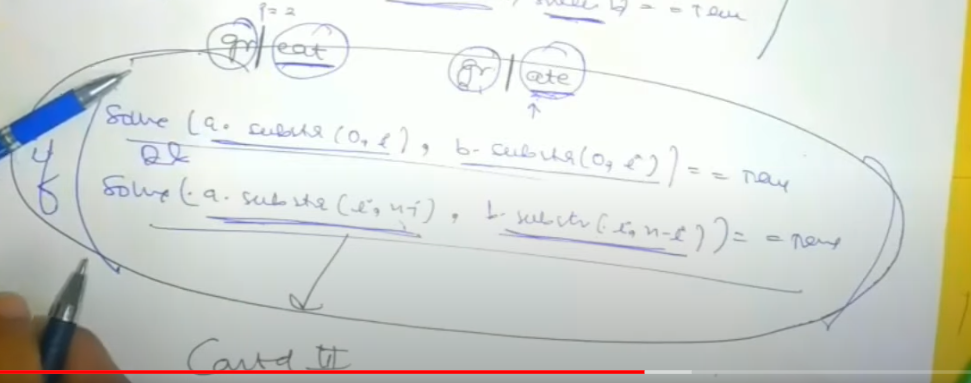 i = 2
gr | eat
gr | ate
if
Solve (a. substr (0, i), b. substr (0, i)) == true
&&
Solve (a. substr (i, n-i), b. substr (i, n-i)) == true
Cond II